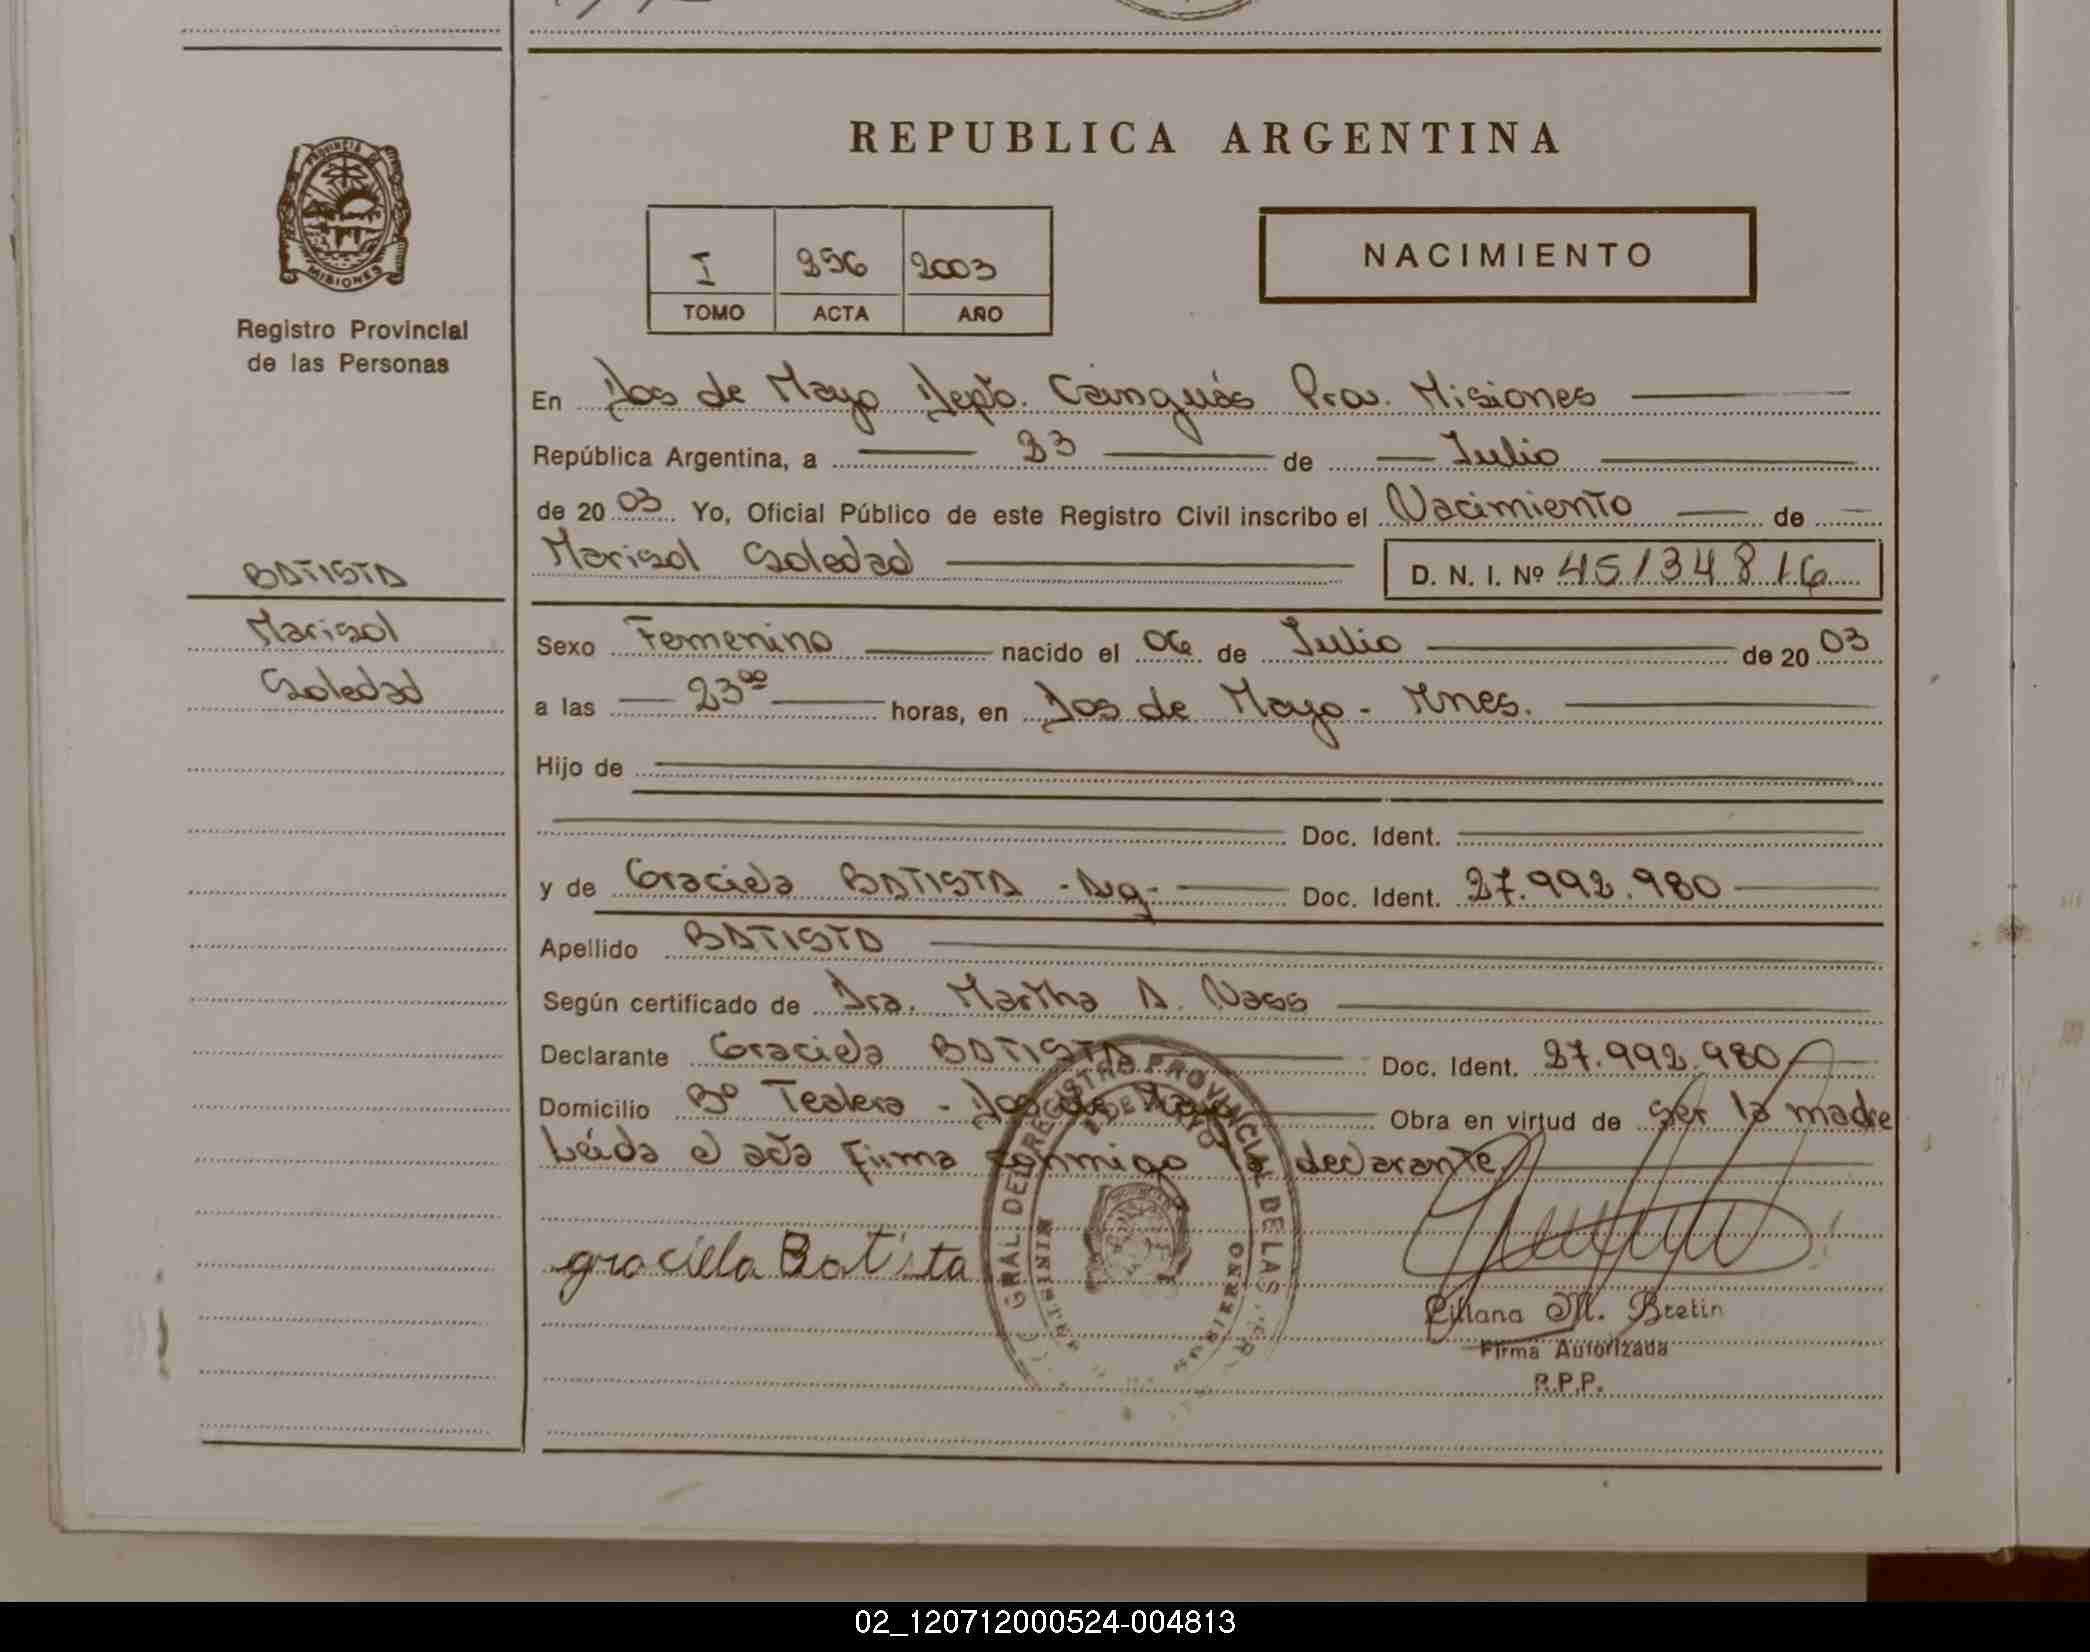 REPUBLICA ARGENTINA
PROVINCIA DE
MISIONES
Registro Provincial
de las Personas
I 256 2003
TOMO ACTA AÑO
NACIMIENTO
En Dos de Mayo Depto. Cainguás Prov. Misiones
República Argentina, a 23 de Julio
de 20 03 Yo, Oficial Público de este Registro Civil inscribo el Nacimiento de
Marisol Soledad D. N. I. Nº 45134816
BATISTA
Marisol
Soledad
Sexo Femenino nacido el 06 de Julio de 20 03
a las 23⁰⁰ horas, en Dos de Mayo - Mnes.
Hijo de
Doc. Ident.
y de Graciela BATISTA - Arg - Doc. Ident. 27.992.980
Apellido BATISTA
Según certificado de Dra. Martha A. Nass
Declarante Graciela BATISTA Doc. Ident. 27.992.980
Domicilio Bº Tealera - Dos de Mayo Obra en virtud de ser la madre
Leida el acta firma conmigo la declarante
GRAL. DEL REGISTRO PROVINCIAL DE LAS
GOBIERNO
graciela Batista
Liliana M. Bretin
Firma Autorizada
R.P.P.
02_120712000524-004813